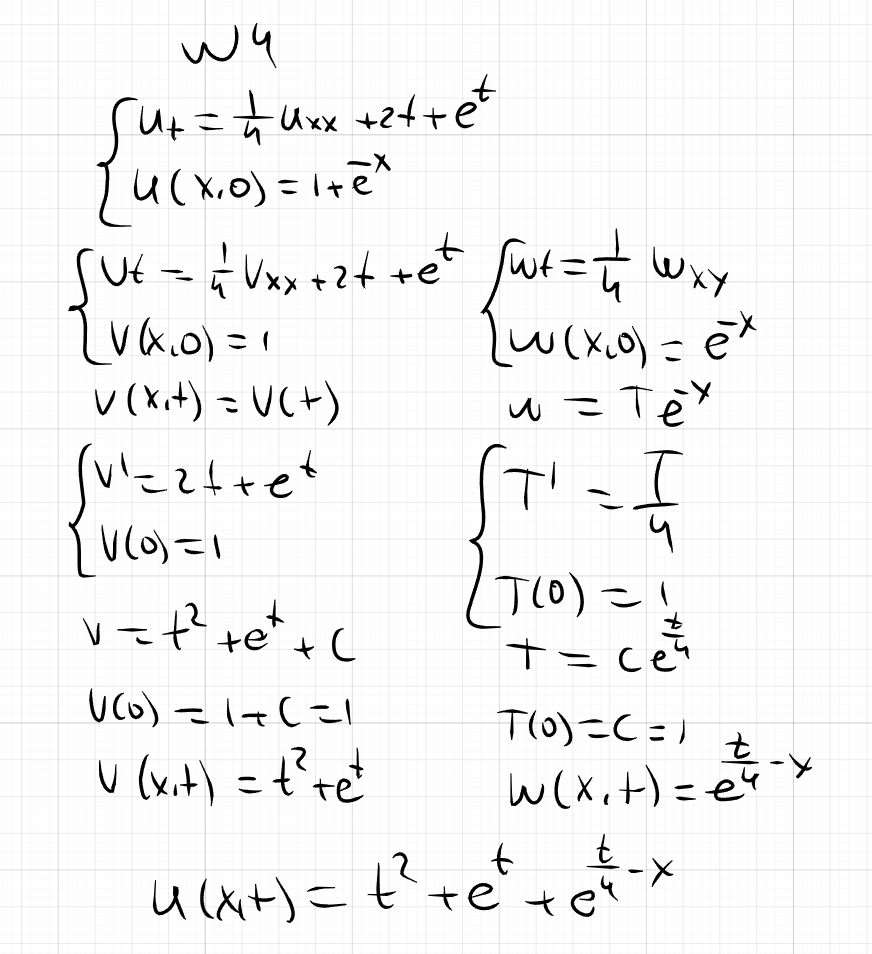 w4
u_t = 1/4 u_xx + 2t + e^t
u(x,0) = 1 + e^-x
v_t = 1/4 v_xx + 2t + e^t
v(x,0) = 1
v(x,t) = v(t)
v' = 2t + e^t
v(0) = 1
v = t^2 + e^t + C
v(0) = 1 + C = 1
v(x,t) = t^2 + e^t
w_t = 1/4 w_xy
w(x,0) = e^-x
w = Te^-x
T' = T/4
T(0) = 1
T = Ce^(t/4)
T(0) = C = 1
w(x,t) = e^(t/4 - x)
u(x,t) = t^2 + e^t + e^(t/4 - x)